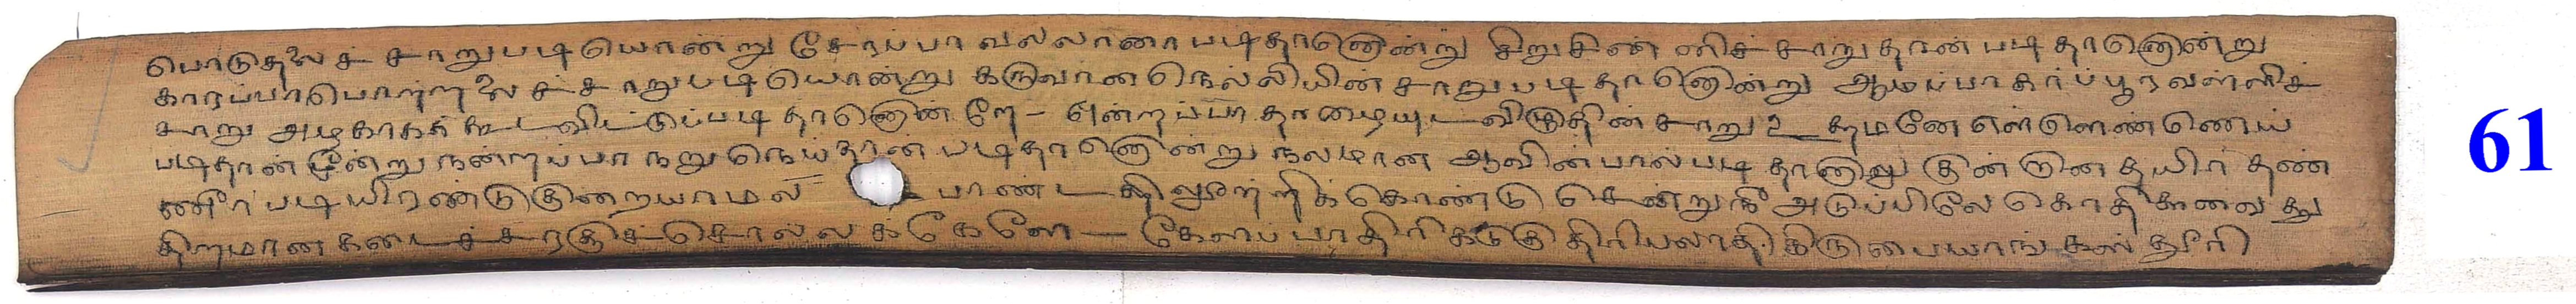 பொடுதலைச் சாறுபடி யொன்று சேரப்பா வல்லாரை படிதானொன்று சிறுசின்னிச் சாறுதான் படிதானொன்று
காரப்பா பொற்றலைச் சாறுபடி யொன்று கருவான நெல்லியின் சாறுபடி தானொன்று ஆமப்பா கற்ப்பூரவள்ளிச்
சாறு அழகாகக் கூடவிட்டுப்படி தானொன்றே - ஒன்றப்பா தாழையுடவிழுதின் சாறு உத்தமனே எள்ளெண்ணெய்
படிதான்மூன்று நன்றப்பா நறுநெய்தான் படிதானொன்று நலமான ஆவின்பால்படி தானாறு குன்றான தயிர் தண்
ணீர் படியிரண்டு குறையாமல் பாண்டத்திலூற்றிக்கொண்டு சென்றுநீ அடுப்பிலே கொதிக்கவைத்து
திறமான கடைச்சரக்குச் சொல்லக் கேளே - கேளப்பா திரிகடுகு திரிபலாதி திருபையாங் கஸ்தூரி